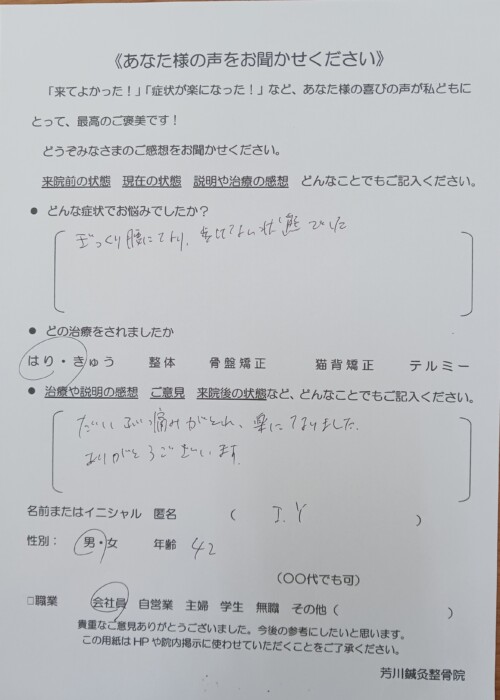 《あなた様の声をお聞かせください》
「来てよかった！」「症状が楽になった！」など、あなた様の喜びの声が私どもに
とって、最高のご褒美です！
どうぞみなさまのご感想をお聞かせください。
来院前の状態　現在の状態　説明や治療の感想　どんなことでもご記入ください。
● どんな症状でお悩みでしたか？
ぎっくり腰になり、歩けない状態でした
● どの治療をされましたか
はり・きゅう　整体　骨盤矯正　猫背矯正　テルミー
● 治療や説明の感想　ご意見　来院後の状態など、どんなことでもご記入ください。
だいぶ痛みがとれ、楽になりました。
ありがとうございます。
名前またはイニシャル　匿名　（　I.Y　）
性別：　男・女　年齢　42
（〇〇代でも可）
□職業　会社員　自営業　主婦　学生　無職　その他（　）
貴重なご意見ありがとうございました。今後の参考にしたいと思います。
この用紙はHPや院内掲示に使わせていただくことをご了承ください。
芳川鍼灸整骨院